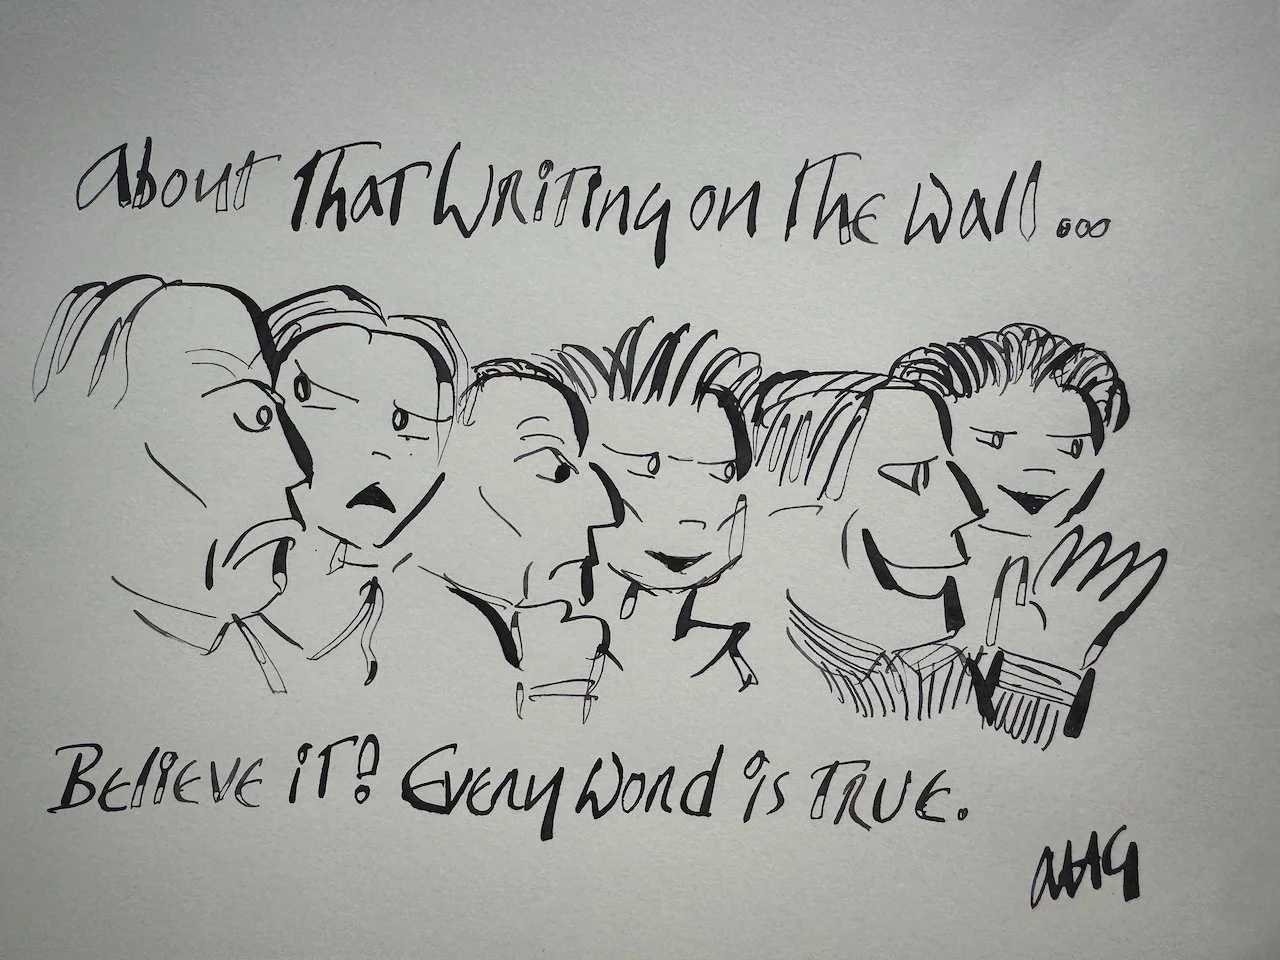 About That Writing on The Wall...
Believe iT! Every Word is TRUE.